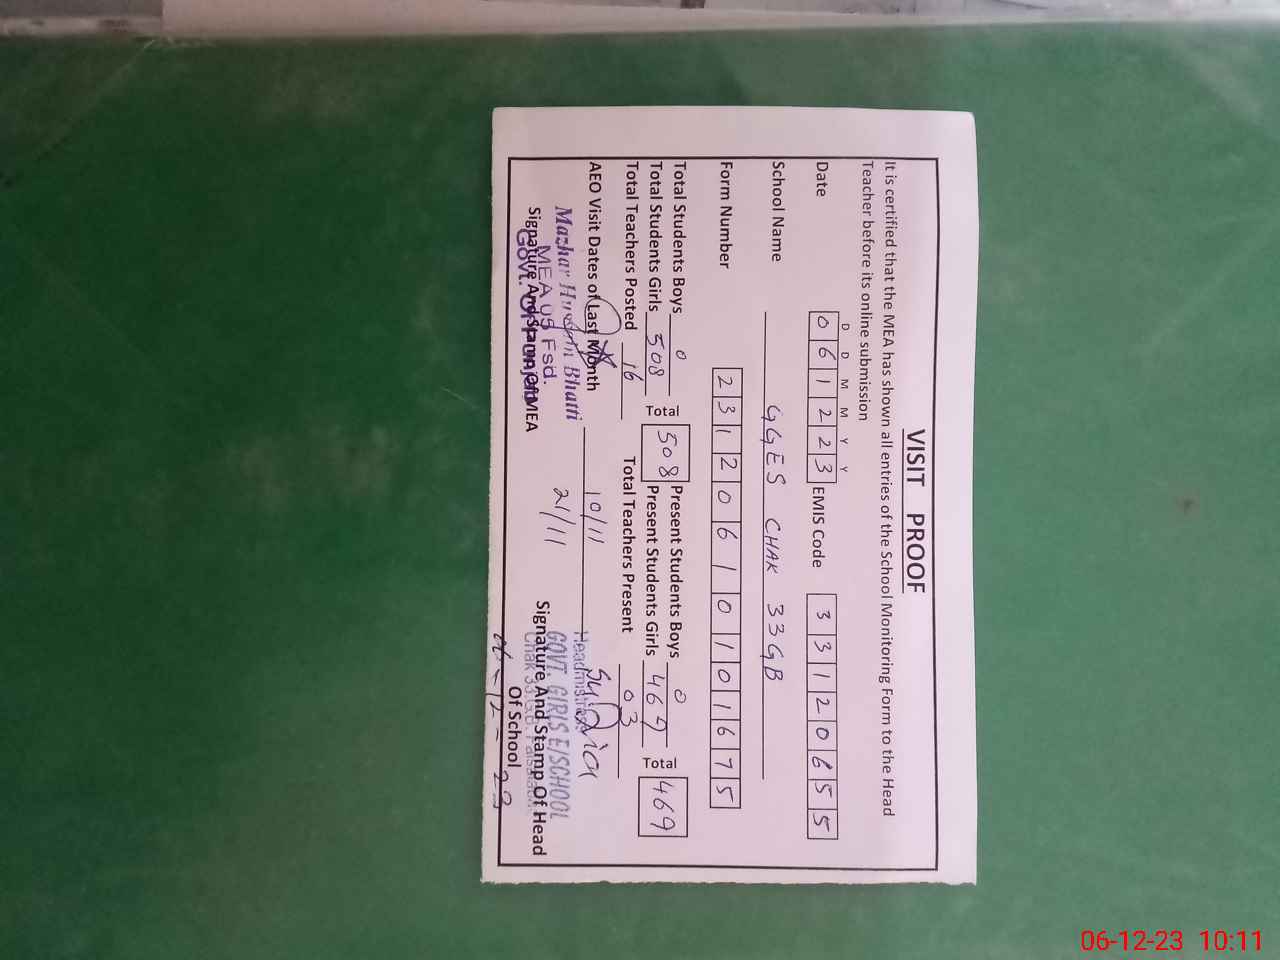 VISIT PROOF
It is certified that the MEA has shown all entries of the School Monitoring Form to the Head
Teacher before its online submission
D D M M Y Y
Date 0 6 1 2 2 3 EMIS Code 3 3 1 2 0 6 5 5
School Name GGES CHAK 33GB
Form Number 2 3 1 2 0 6 1 0 1 0 1 6 7 5
Total Students Boys 0 Present Students Boys 0
Total Students Girls 508 Total 508 Present Students Girls 469 Total 469
Total Teachers Posted 16 Total Teachers Present 03
AEO Visit Dates of Last Month 10/11
21/11
Mazhar Hussain Bhatti
MEA 05 Fsd.
Govt. Of Punjab
Signature And Stamp Of MEA
Headmistress
GOVT. GIRLS E/SCHOOL
Chak 33 G.B. Faisalabad
Signature And Stamp Of Head
Of School
06-12-23 10:11